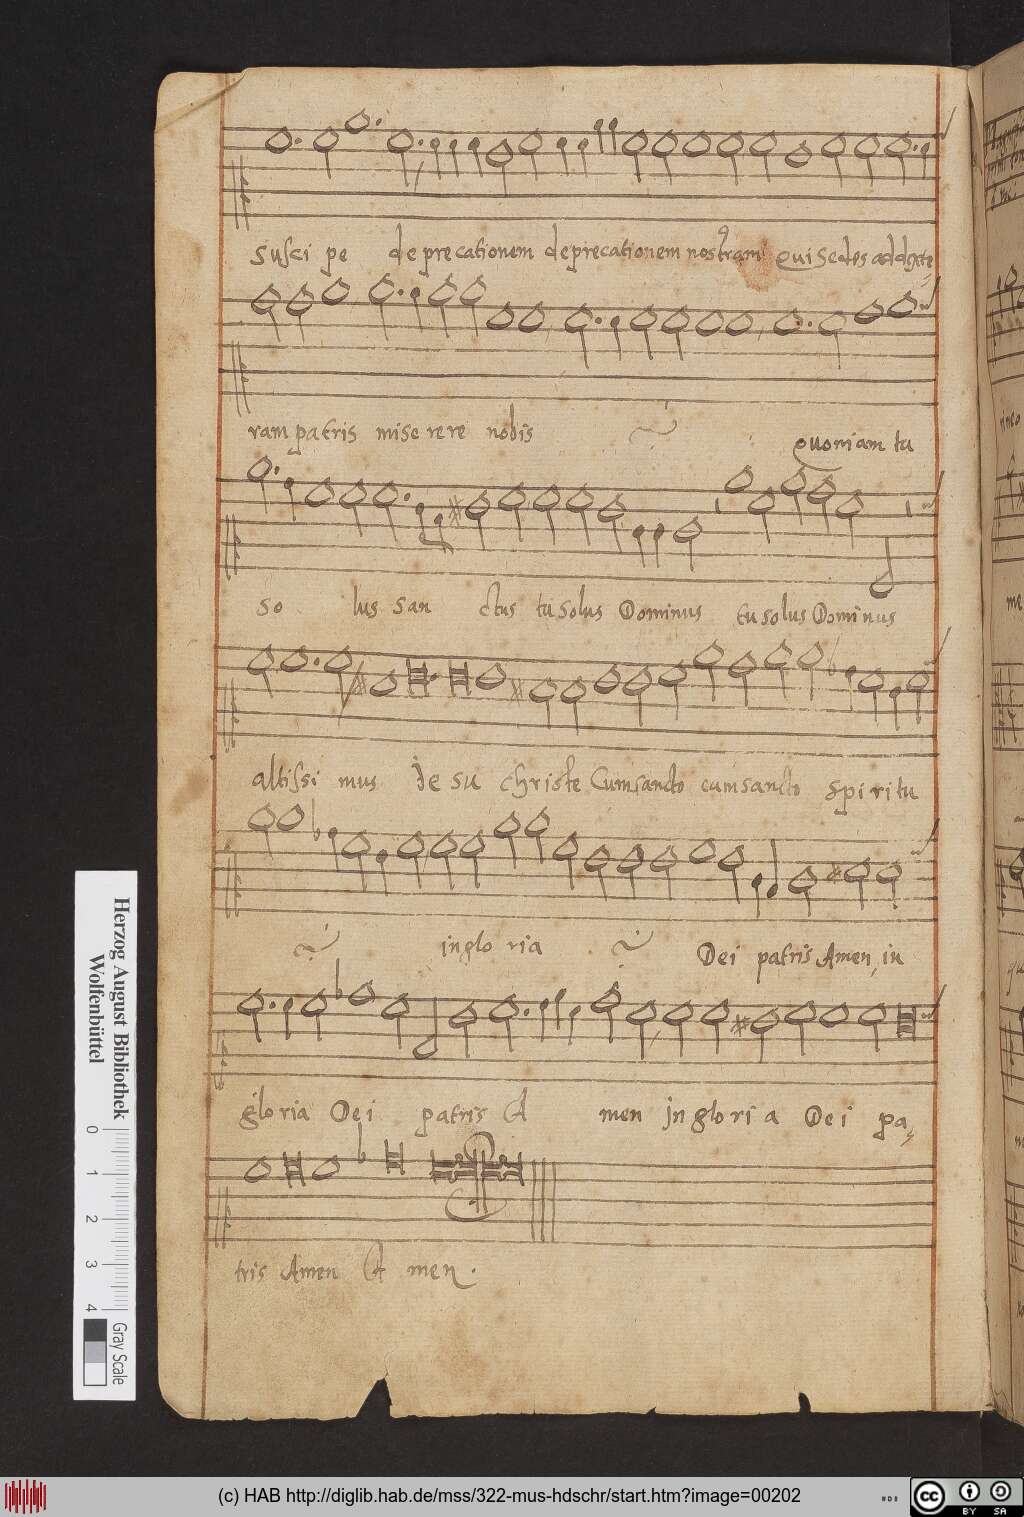 Susci pe deprecationem deprecationem nostram Qui Sedes ad dexte
ram patris mise rere nobis Quoniam tu
So lus San ctus tu solus Dominus tu solus Dominus
altissi mus Je su christe Cum sancto cum sancto Spi ri tu
in glo ria Dei patris Amen, in
gloria Dei patris A men in glori a Dei pa,
tris Amen A men.
Herzog August Bibliothek
Wolfenbüttel
0 1 2 3 4
Gray Scale
(c) HAB http://diglib.hab.de/mss/322-mus-hdschr/start.htm?image=00202
cc BY SA